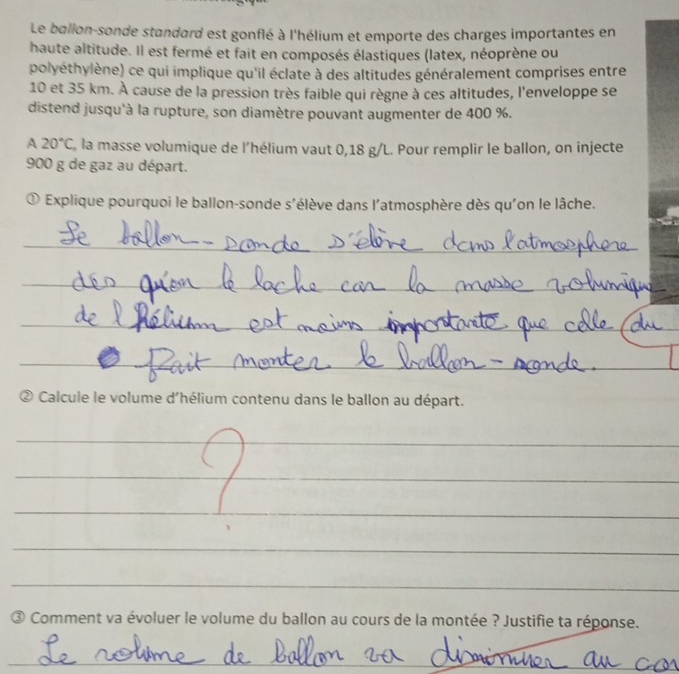 Le ballon-sonde standard est gonflé à l'hélium et emporte des charges importantes en
haute altitude. Il est fermé et fait en composés élastiques (latex, néoprène ou
polyéthylène) ce qui implique qu'il éclate à des altitudes généralement comprises entre
10 et 35 km. À cause de la pression très faible qui règne à ces altitudes, l'enveloppe se
distend jusqu'à la rupture, son diamètre pouvant augmenter de 400 %.
A 20°C, la masse volumique de l'hélium vaut 0,18 g/L. Pour remplir le ballon, on injecte
900 g de gaz au départ.
① Explique pourquoi le ballon-sonde s'élève dans l'atmosphère dès qu'on le lâche.
Le ballon-sonde s'élève dans l'atmosphère
dès qu'on le lache car la masse volumique
de l'hélium est moins importante que celle (du
fait monter le ballon-sonde.
② Calcule le volume d'hélium contenu dans le ballon au départ.
?
③ Comment va évoluer le volume du ballon au cours de la montée ? Justifie ta réponse.
Le volume de ballon va diminuer au cou